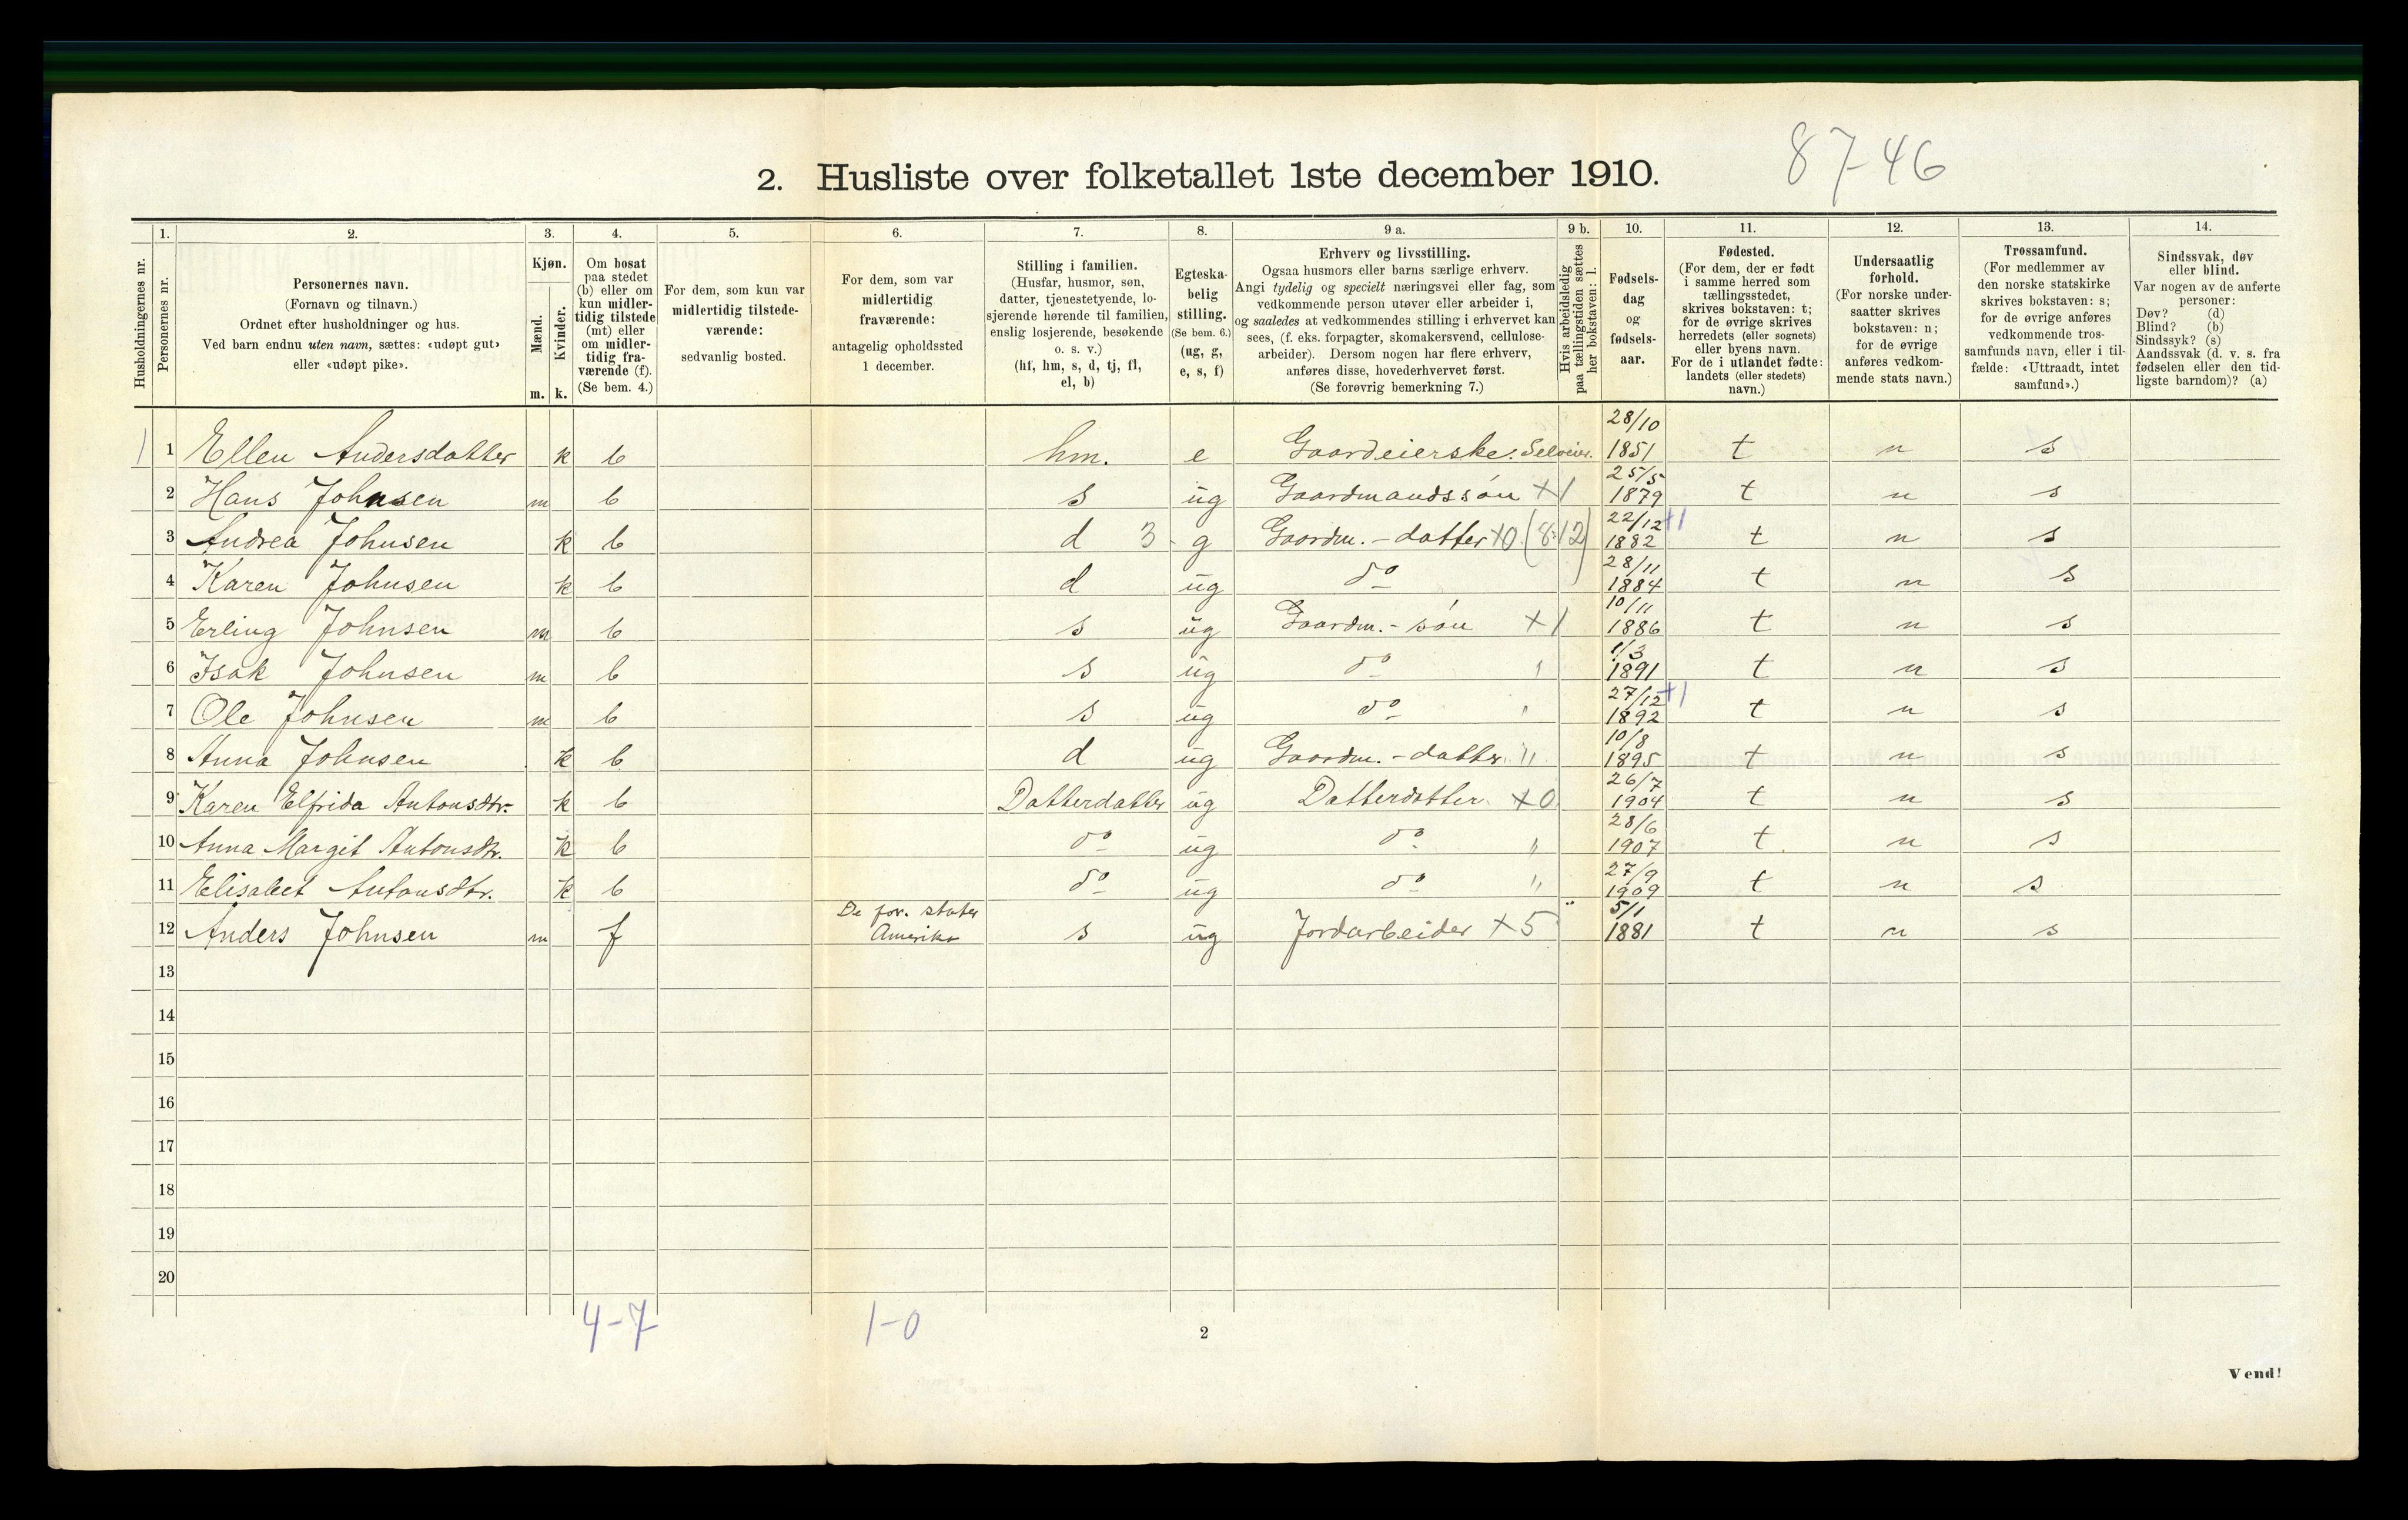 87-46
2. Husliste over folketallet 1ste december 1910.
1. 2. 3. 4. 5. 6. 7. 8. 9 a. 9 b. 10. 11. 12. 13. 14.
Husholdningernes nr.
Personernes nr.
Personernes navn.
(Fornavn og tilnavn.)
Ordnet efter husholdninger og hus.
Ved barn endnu uten navn, sættes: «udøpt gut»
eller «udøpt pike».
Kjøn.
Mænd.
Kvinder.
m. k.
Om bosat
paa stedet
(b) eller om
kun midler-
tidig tilstede
(mt) eller
om midler-
tidig fra-
værende (f).
(Se bem. 4.)
For dem, som kun var
midlertidig tilstede-
værende:
sedvanlig bosted.
For dem, som var
midlertidig
fraværende:
antagelig opholdssted
1 december.
Stilling i familien.
(Husfar, husmor, søn,
datter, tjenestetyende, lo-
sjerende hørende til familien,
enslig losjerende, besøkende
o. s. v.)
(hf, hm, s, d, tj, fl,
el, b)
Egteska-
belig
stilling.
(Se bem. 6.)
(ug, g,
e, s, f)
Erhverv og livsstilling.
Ogsaa husmors eller barns særlige erhverv.
Angi tydelig og specielt næringsvei eller fag, som
vedkommende person utøver eller arbeider i,
og saaledes at vedkommendes stilling i erhvervet kan
sees, (f. eks. forpagter, skomakersvend, cellulose-
arbeider). Dersom nogen har flere erhverv,
anføres disse, hovederhvervet først.
(Se forøvrig bemerkning 7.)
Hvis arbeidsledig
paa tællingstiden sættes
her bokstaven: l.
Fødsels-
dag
og
fødsels-
aar.
Fødested.
(For dem, der er født
i samme herred som
tællingsstedet,
skrives bokstaven: t;
for de øvrige skrives
herredets (eller sognets)
eller byens navn.
For de i utlandet fødte:
landets (eller stedets)
navn.)
Undersaatlig
forhold.
(For norske under-
saatter skrives
bokstaven: n;
for de øvrige
anføres vedkom-
mende stats navn.)
Trossamfund.
(For medlemmer av
den norske statskirke
skrives bokstaven: s;
for de øvrige anføres
vedkommende tros-
samfunds navn, eller i til-
fælde: «Uttraadt, intet
samfund».)
Sindssvak, døv
eller blind.
Var nogen av de anførte
personer:
Døv? (d)
Blind? (b)
Sindssyk? (s)
Aandssvak (d. v. s. fra
fødselen eller den tid-
ligste barndom)? (a)
1 1 Ellen Andersdatter k b hm. e Gaardeierske. Selveier. 28/10 1851 t n s
2 Hans Johnsen m b s ug Gaardmandssøn +1 25/5 1879 t n s
3 Andrea Johnsen k b d 3 g Gaardm.-datter +0 (8:12) 22/12 +1 1882 t n s
4 Karen Johnsen k b d ug do 28/11 1884 t n s
5 Erling Johnsen m b s ug Gaardm.-søn +1 10/11 1886 t n s
6 Isak Johnsen m b s ug do " 1/3 1891 t n s
7 Ole Johnsen m b s ug do " 27/12 +1 1892 t n s
8 Anna Johnsen k b d ug Gaardm.-datter " 10/8 1895 t n s
9 Karen Elfrida Antonsdtr. k b Datterdatter ug Datterdatter +0 26/7 1904 t n s
10 Anna Margit Antonsdtr. k b do ug do " 28/6 1907 t n s
11 Elisabet Antonsdtr. k b do ug do " 27/9 1909 t n s
12 Anders Johnsen m f De for. stater Amerika s ug Jordarbeider +5 5/1 1881 t n s
13
14
15
16
17
18
19
20
4-7 1-0
2
Vend!